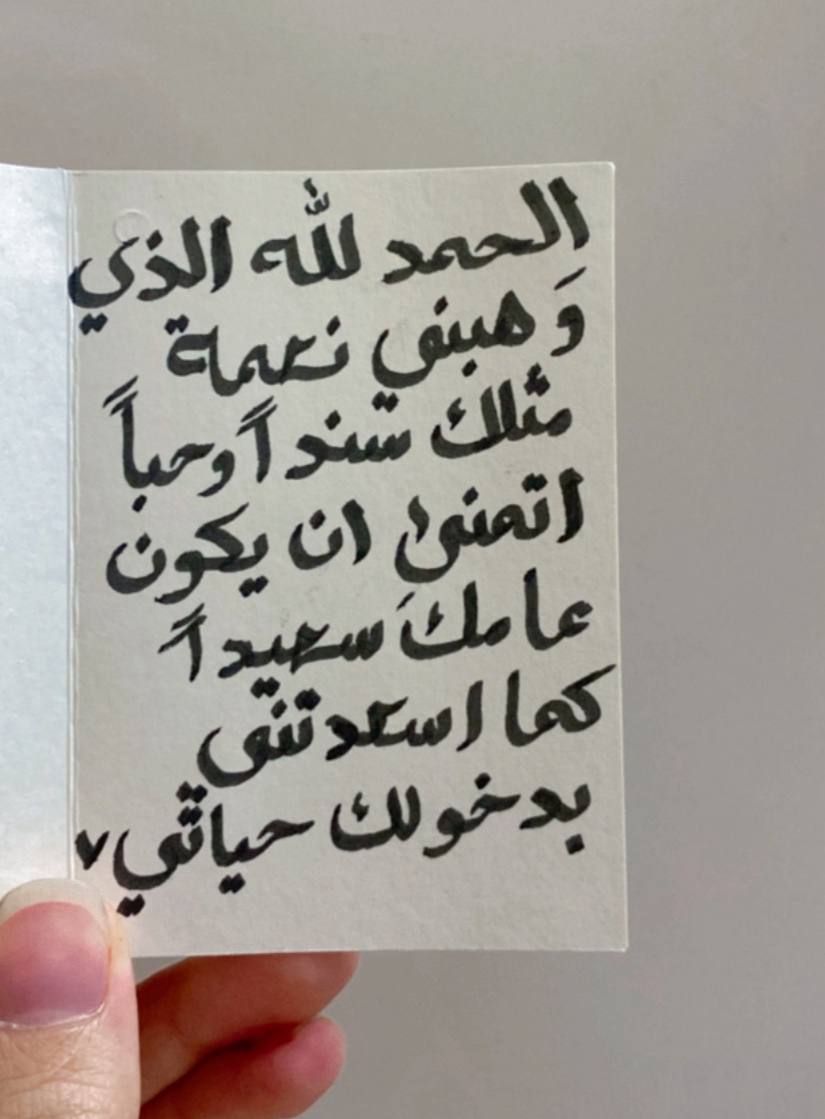 الحمد لله الذي
وَهبني نعمة
مثلك سنداً وحباً
اتمنى ان يكون
عامكَ سعيداً
كما اسعدتني
بدخولك حياتي